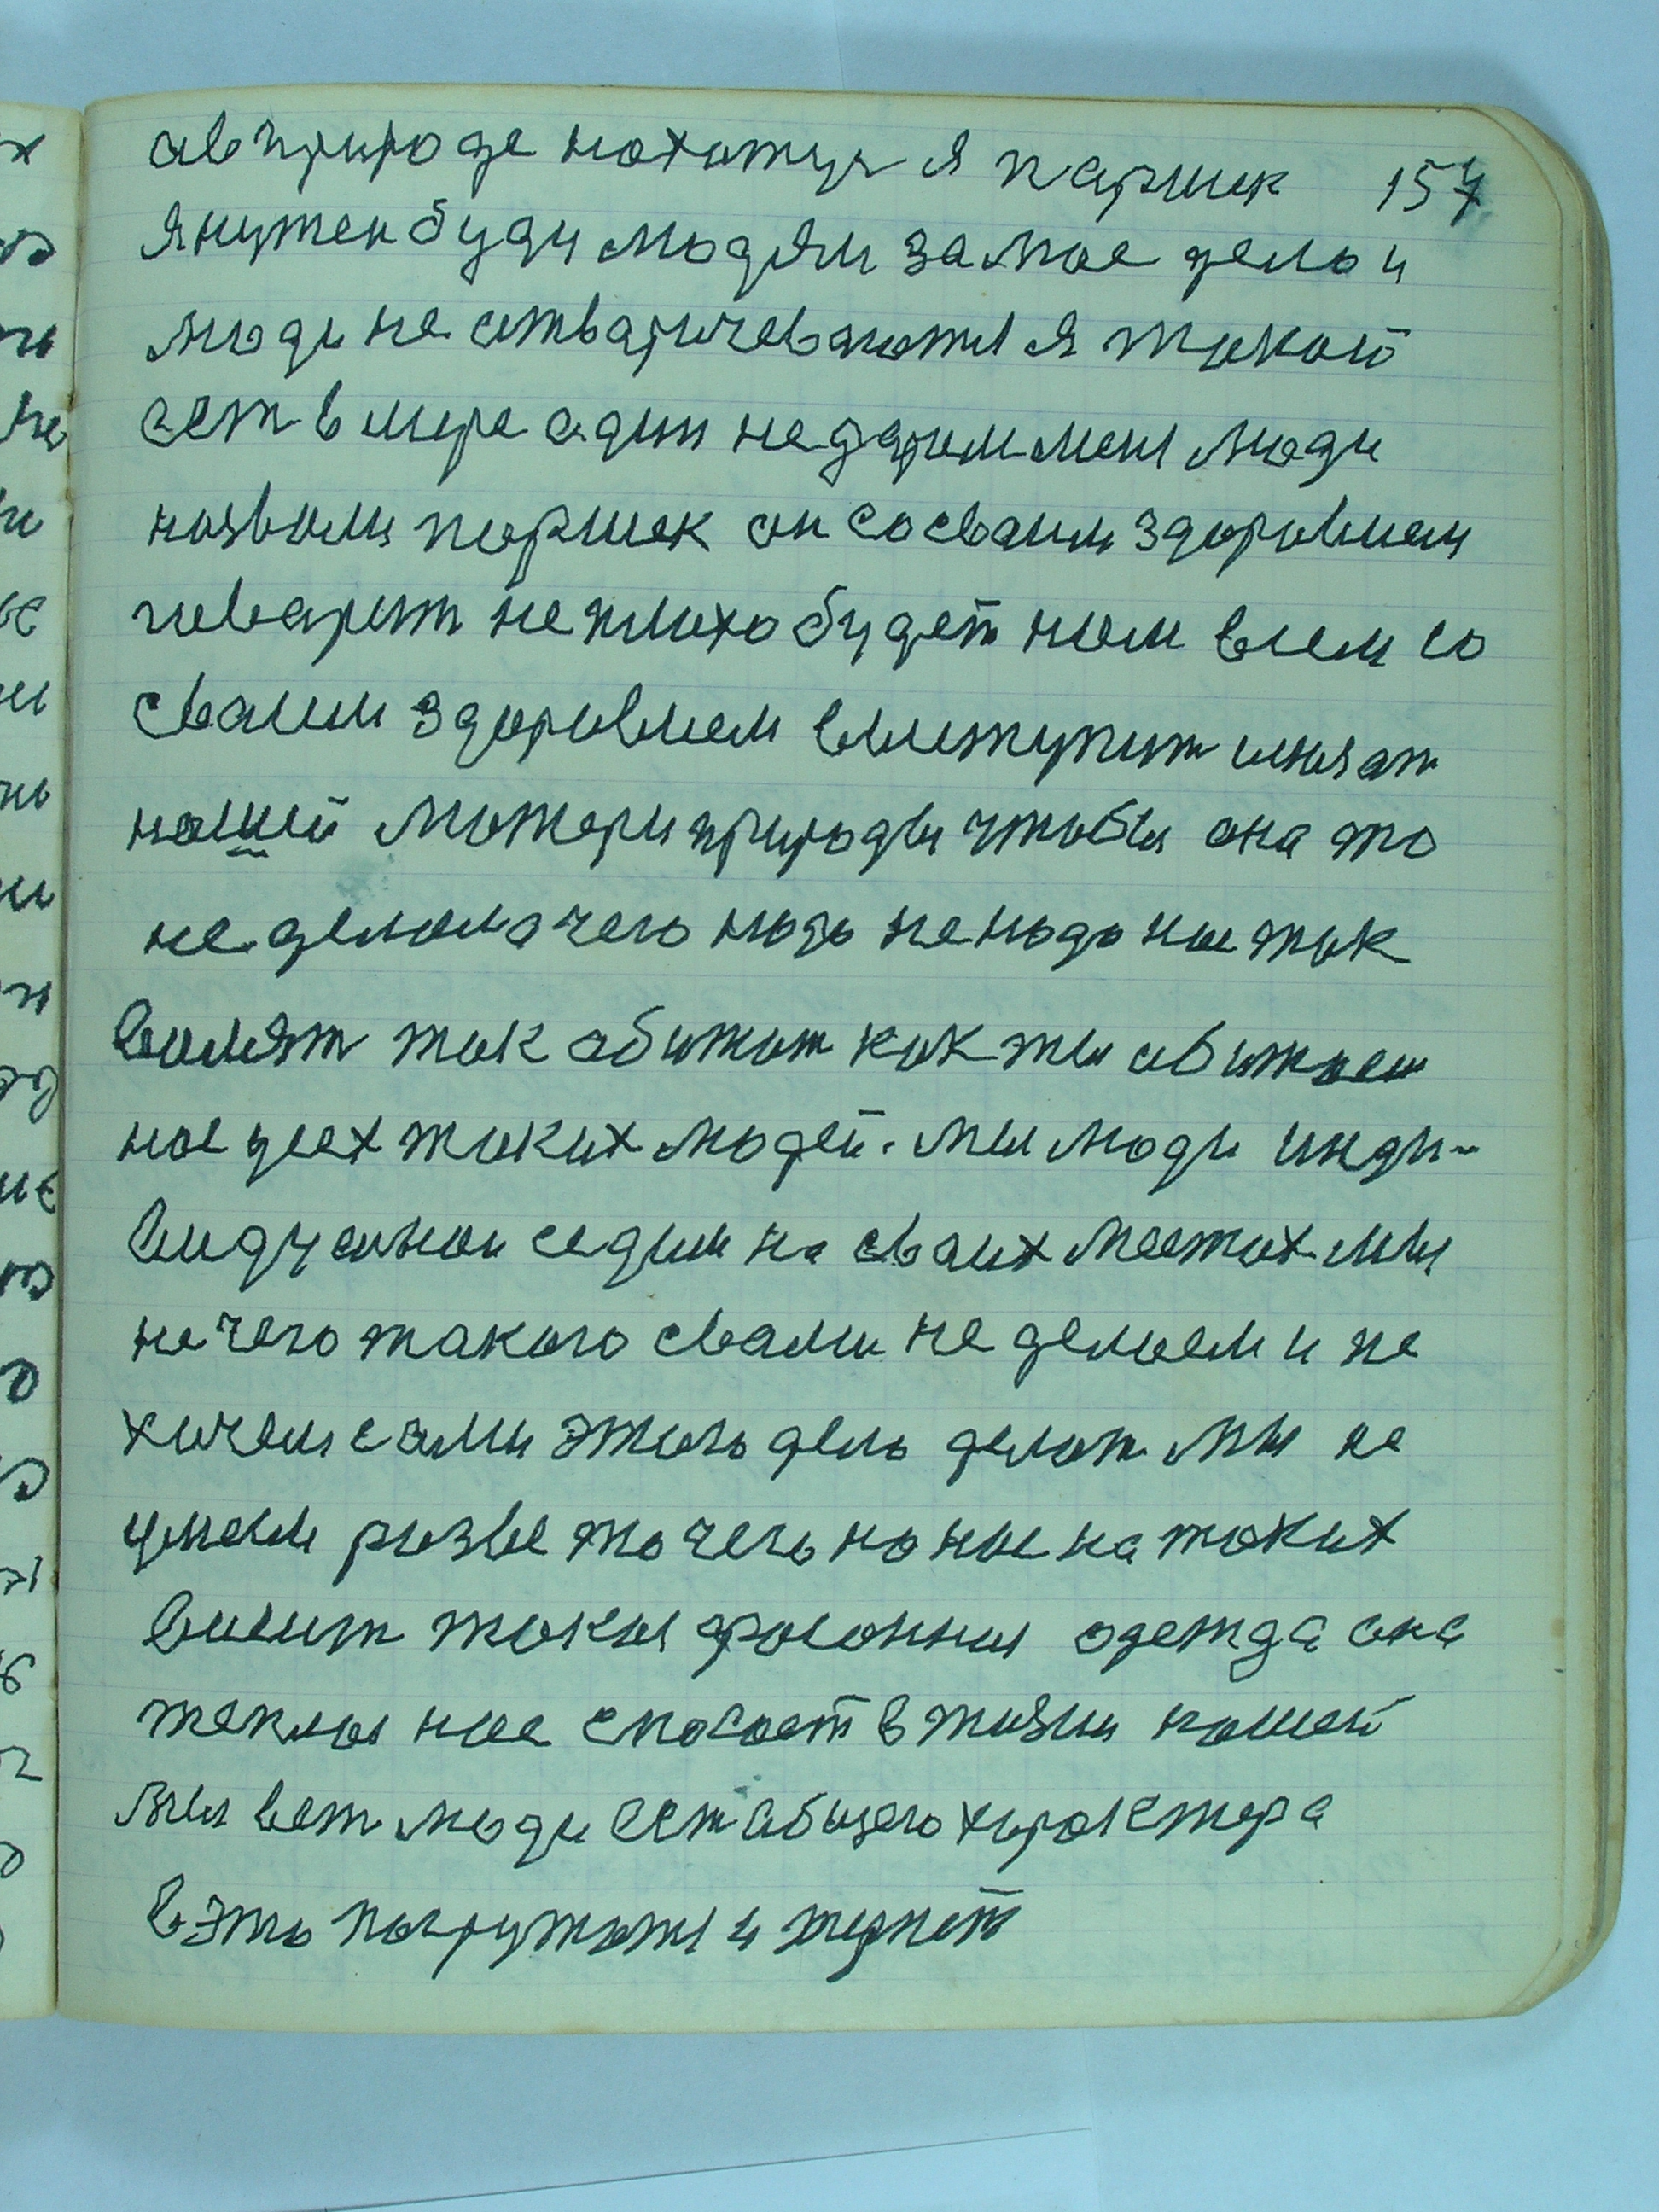 авприроде нахажус я паршек 157
Янужен буду людям за мое дело и
люди не атварачеваются я такой
ест в мире адин недаром меня люди
назвали паршек он сосваим здоровием
гаварит неплохо будет нам всем со
сваим здоровием выступит иняат
нашей матери природы чтобы она то
не делала чего надо ненадо нас так
валят так абижат как ты абижаеш
нас усех таких людей. мы люди инди-
видуально седим на сваих местах мы
нечего такого свами неделаем и не
хочем сами этого дела делат мы не
умеем разве то чего на нас на таких
висит такая фасонная одежда она
теклая нас спасает в жизни нашей
мы вет люди ест абщего характера
в это погружатся и терпет